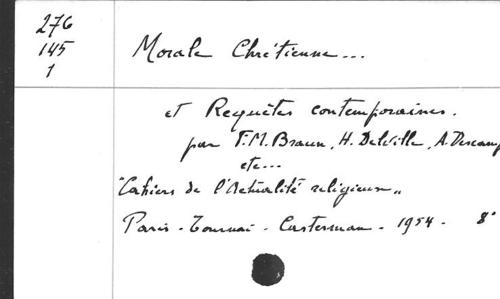 276
145
1
Morale Chrétienne...
et Requêtes contemporaines.
par F.M. Braun, H. Delville, A. Descamp
etc...
"Cahiers de l'Actualité religieuse"
Paris - Tournai - Casterman - 1954 - 8°